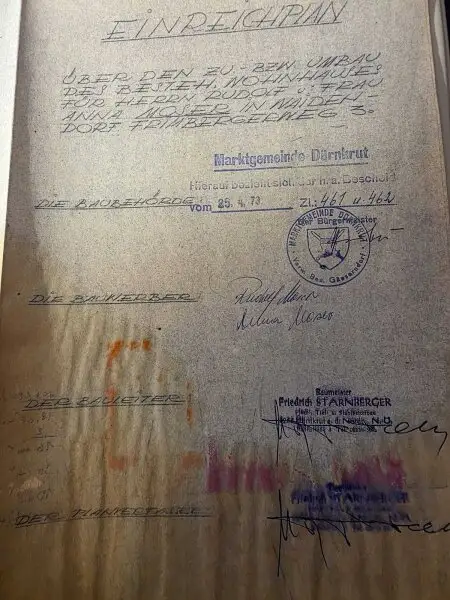 EINREICHPLAN
ÜBER DEN ZU- BZW. UMBAU
DES BESTEH. WOHNHAUSES
FÜR HERRN RUDOLF u. FRAU
ANNA MOSER IN WAIDEN-
DORF FRIMBERGERWEG 3.
Marktgemeinde Dürnkrut
Hierauf bezieht sich der h. a. Bescheid
vom 25. 4. 73 Zl.: 461 u. 462
DIE BAUBEHÖRDE
Bürgermeister
MARKTGEMEINDE DÜRNKRUT
Verw. Bez. Gänserndorf
DIE BAUWERBER
Rudolf Moser
Anna Moser
DER BAULEITER
Baumeister
Friedrich STARNBERGER
DER PLANVERFASSER